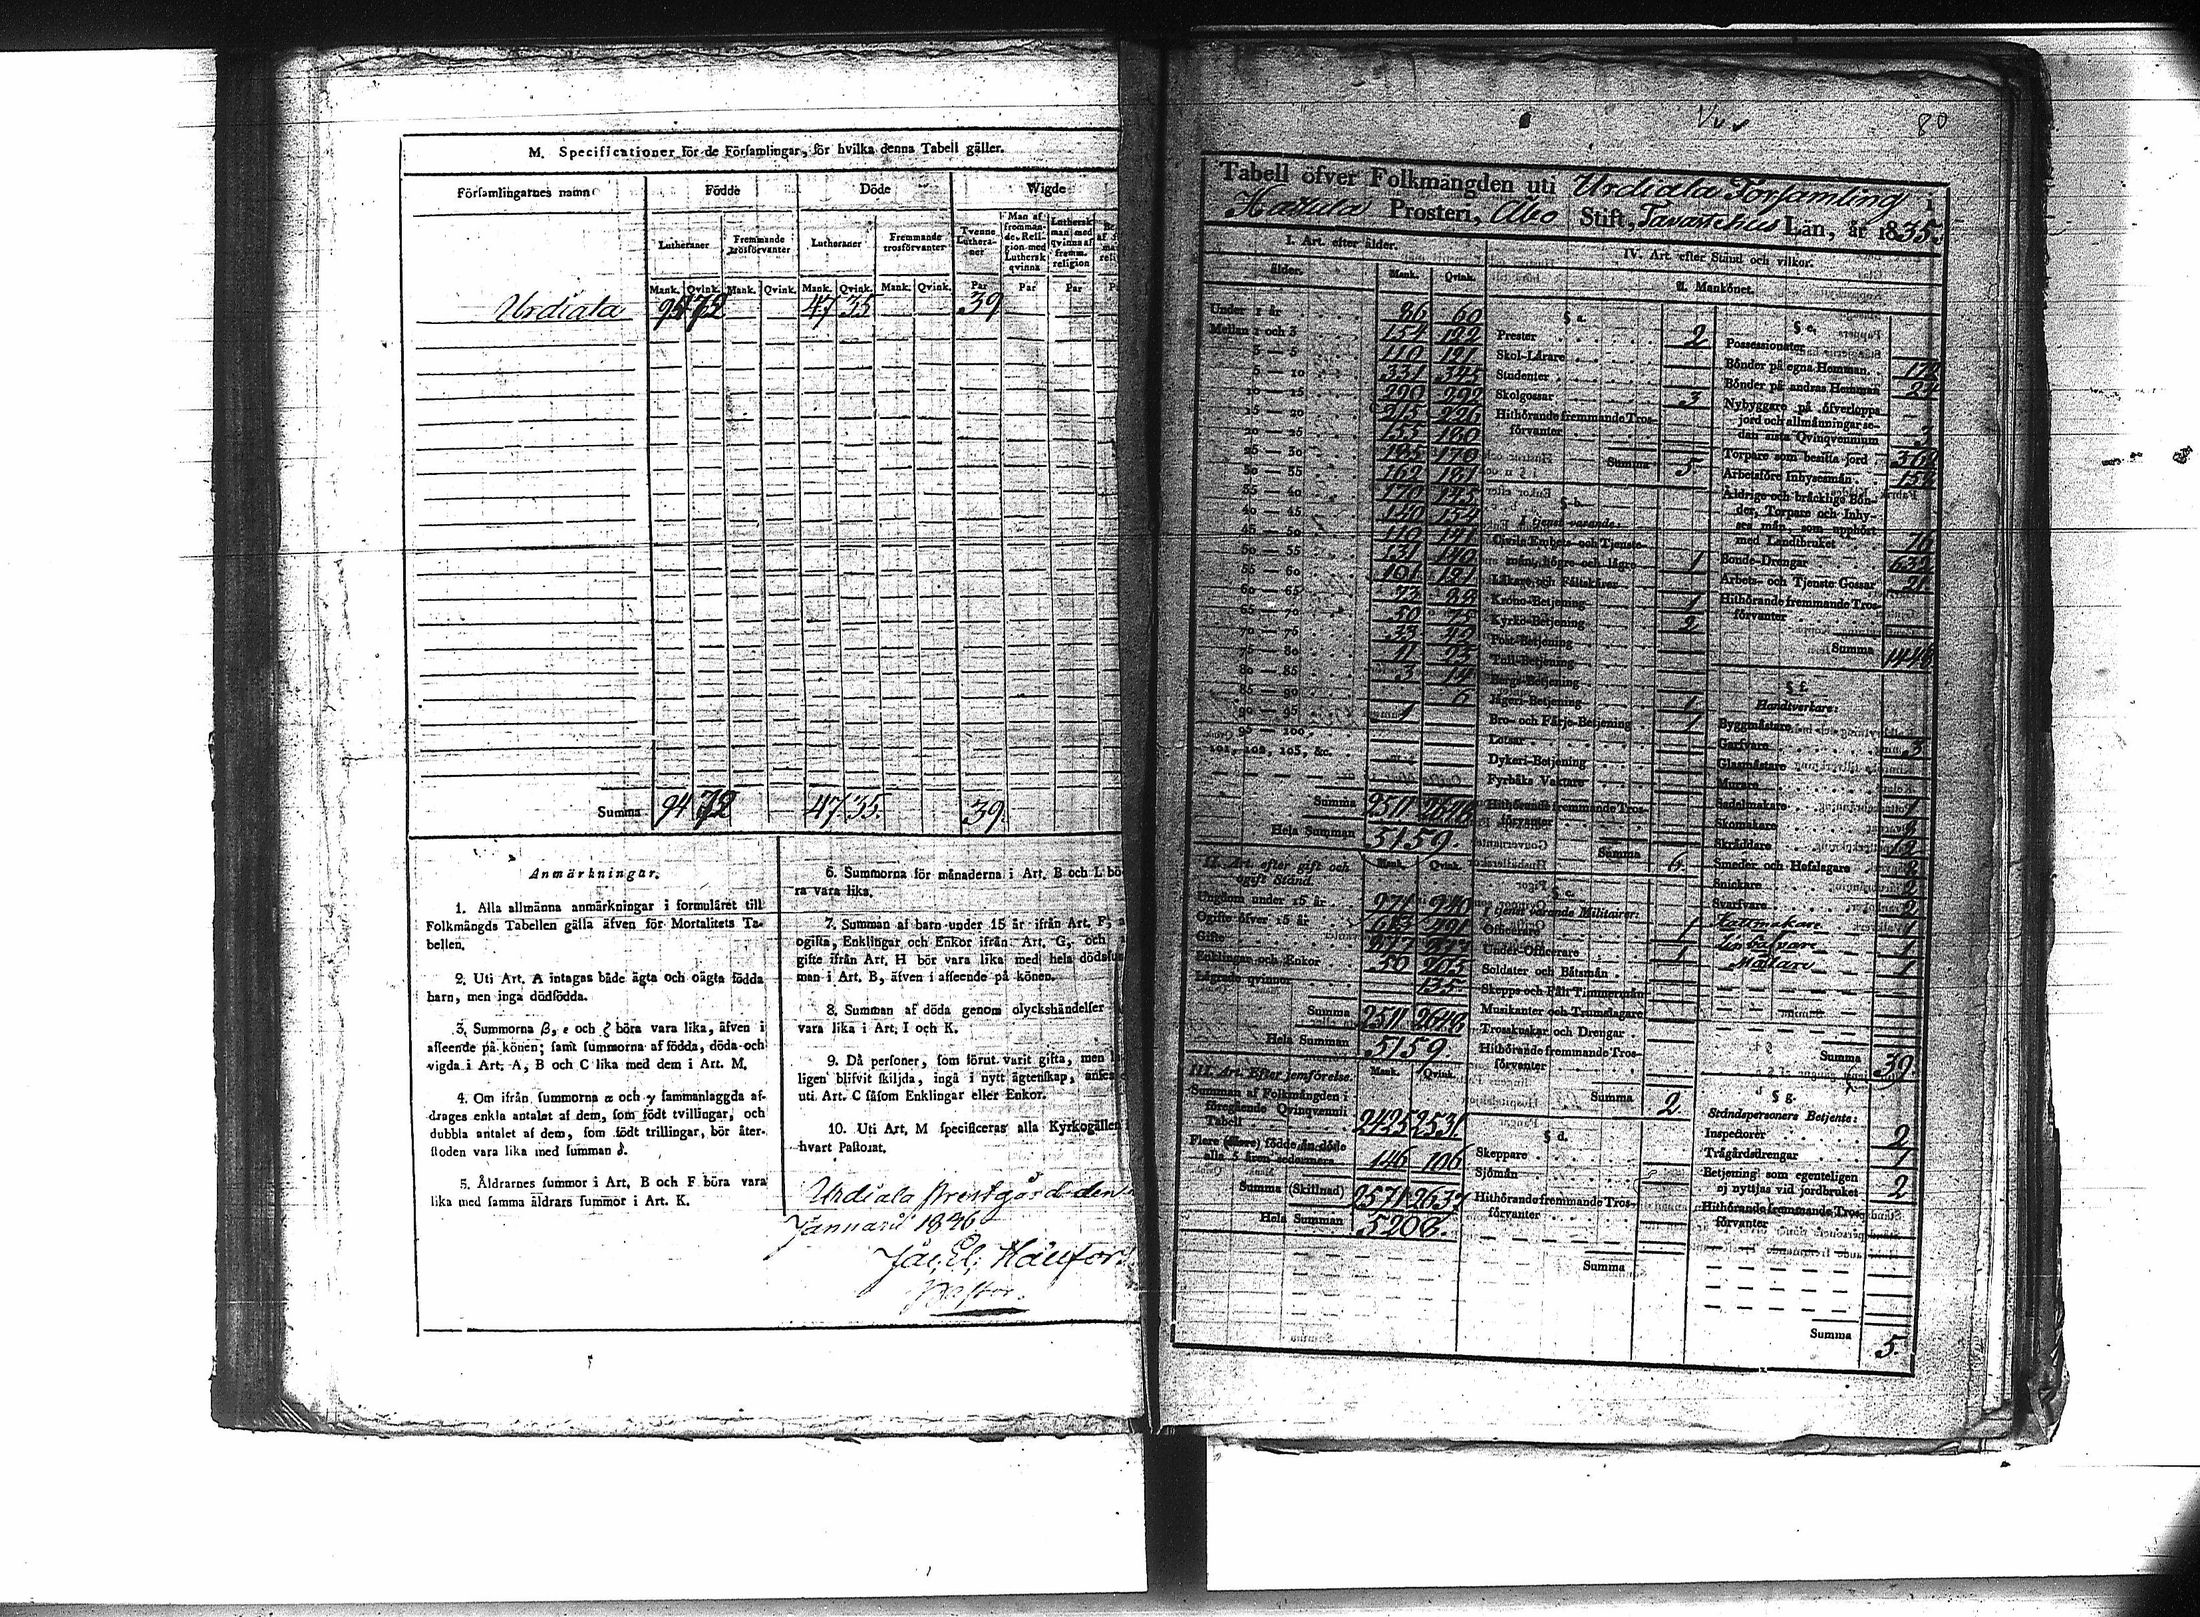 M. Specificationer för de Församlingar, för hvilka denna Tabell gäller.
Församlingarnes namn Födde Döde Wigde
Lutheraner Fremmande trosförvanter Lutheraner Fremmande trosförvanter Tvenne Lutheraner Man af fremmande Religion med Luthersk qvinna Luthersk man med qvinna af fremm. religion
Mank. Qvink. Mank. Qvink. Mank. Qvink. Mank. Qvink. Par Par Par
Urdiala 94 72 47 35 39
Summa 94 72 47 35. 39.
Anmärkningar.
1. Alla allmänna anmärkningar i formuläret till
Folkmängds Tabellen gälla äfven för Mortalitets Ta-
bellen.
2. Uti Art. A intagas både ägta och oägta födda
barn, men inga dödfödda.
3. Summorna β, ε och ζ böra vara lika, äfven i
afseende på könen; samt summorna af födda, döda och
vigda i Art. A, B och C lika med dem i Art. M.
4. Om ifrån summorna α och γ sammanlaggda af-
drages enkla antalet af dem, som födt tvillingar, och
dubbla antalet af dem, som födt trillingar, bör åter-
stoden vara lika med summan δ.
5. Åldrarnes summor i Art. B och F böra vara
lika med samma åldrars summor i Art. K.
6. Summorna för månaderna i Art. B och L bö
ra vara lika.
7. Summan af barn under 15 år ifrån Art. F,
ogifta, Enklingar och Enkor ifrån Art. G, och
gifte ifrån Art. H bör vara lika med hela dödssum
man i Art. B, äfven i afseende på könen.
8. Summan af döda genom olyckshändelser
vara lika i Art. I och K.
9. Då personer, som förut varit gifta, men
ligen blifvit skiljda, ingå i nytt ägtenskap, anses
uti Art. C såsom Enklingar eller Enkor.
10. Uti Art. M specificeras alla Kyrkogällen
hvart Pastorat.
Urdiala Prestgård den
Januarii 1836
Pastor.
80
Tabell öfver Folkmängden uti Urdiala Församling
Prosteri, Åbo Stift, Tavastehus Län, år 1835.
I. Art. efter ålder.
ålder. Mank. Qvink.
Under 1 år 86 60
Mellan 1 och 3 154 122
3 — 5 110 121
5 — 10 331 345
10 — 15 290 292
15 — 20 215 226
20 — 25 155 180
25 — 30 185 170
30 — 35 162 181
35 — 40 170
40 — 45 154
45 — 50 110
50 — 55 131 140
55 — 60 101 121
60 — 65 73
65 — 70 50 75
70 — 75 33 42
75 — 80 11 25
80 — 85 3 14
85 — 90 6
90 — 95 1
95 — 100.
101, 102, 103, &c.
Summa 2511 2648
Hela Summan 5159.
II. Art. efter gift och
ogift Stånd. Mank. Qvink.
Ungdom under 15 år 971 940
Ogifte öfver 15 år
Gifte 877
Enklingar och Enkor 50 205
Lägrade qvinnor 135
Summa 2511 2648
Hela Summan 5159.
III. Art. Efter jemförelse. Mank. Qvink.
Summan af Folkmängden i
föregående Qvinqvennii
Tabell 2425 2531
Flere födde än döde
alla 5 åren sedermera 146 106
Summa (Skillnad) 2571 2637
Hela Summan 5208.
IV. Art efter Stånd och vilkor.
A. Mankönet.
§ a.
Prester 2
Skol-Lärare
Studenter
Skolgossar 3
Hithörande fremmande Tros-
förvanter
Summa 5
§ b.
I tjenst varande:
Civila Embets- och Tjenste-
män, högre och lägre 1
Läkare och Fältskärer
Krono-Betjening 1
Kyrko-Betjening 2
Post-Betjening
Tull-Betjening
Bergs-Betjening
Jägeri-Betjening 1
Bro- och Färje-Betjening 1
Lotsar
Dykeri-Betjening
Fyrbåks Vaktare
Hithörande fremmande Tros-
förvanter
Summa 6.
§ c.
I tjenst varande Militairer:
Officerare 1
Under-Officerare 1
Soldater och Båtsmän
Skepps och Fält Timmermän
Musikanter och Trumslagare
Trosskuskar och Drengar
Hithörande fremmande Tros-
förvanter
Summa 2.
§ d.
Skeppare
Sjömän
Hithörande fremmande Tros-
förvanter
Summa
§ e.
Possessionater
Bönder på egna Hemman
Bönder på andras Hemman 24
Nybyggare på öfverlopps
jord och allmänningar se-
dan sista Qvinqvennium 3
Torpare som besitta jord
Arbetsföre Inhysesmän
Åldrige och bräcklige Bön-
der, Torpare och Inhy-
ses män, som upphört
med Landtbruket
Sonde-Drengar 632
Arbets- och Tjenste Gossar 21.
Hithörande fremmande Tros-
förvanter
Summa 1448.
§ f.
Handtverkare:
Byggmästare
Garfvare 3
Glasmästare
Murare
Sadelmakare 1
Skomakare 8
Skräddare 12
Smeder och Hofslagare 8
Snickare 2
Svarfvare 2
Hattmakare 1
Linvävare 1
Målare 1
Summa 39.
§ g.
Ståndspersoners Betjente:
Inspector 2
Trägårdsdrengar 1
Betjening som egenteligen
ej nyttjas vid jordbruket 2
Hithörande fremmande Tros-
förvanter
Summa 5.